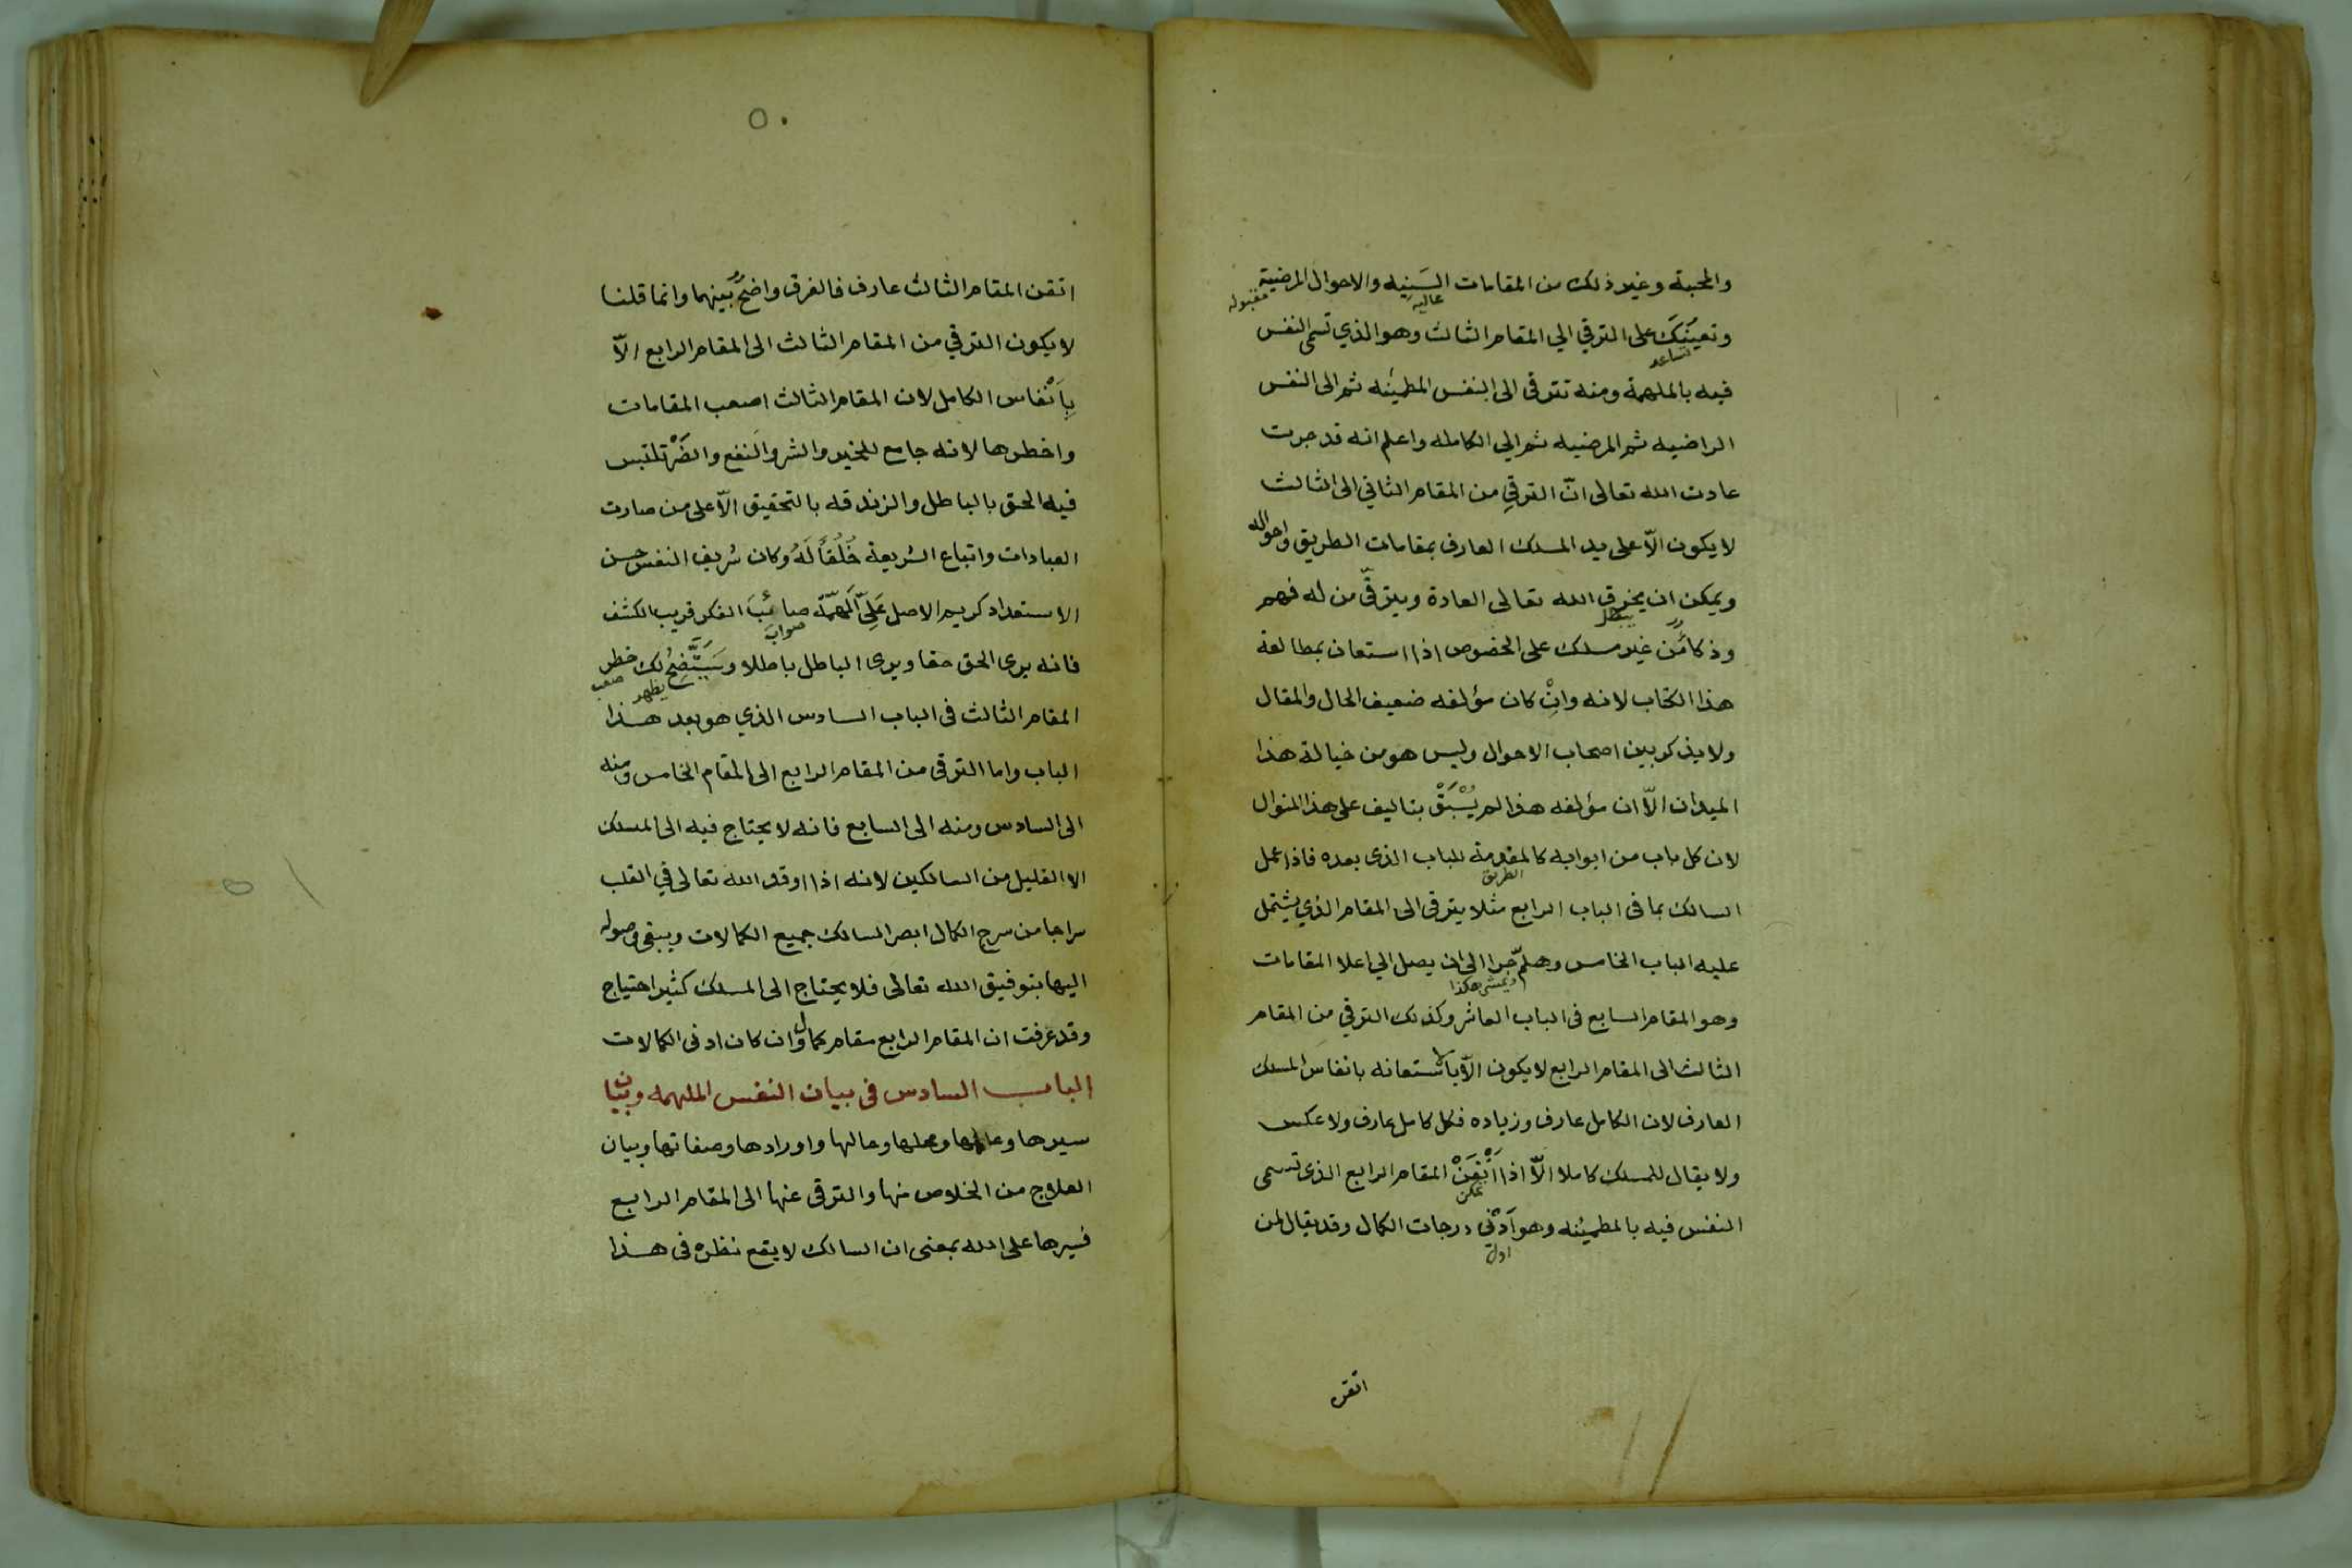 والمحبة وغير ذلك من المقامات السَنِيه والاحوال المرضية
عاليه
مقبوله
وتعينك على الترقي الي المقام الثالث وهو الذي تسمى النفس
تساعد
فيه بالملهمة ومنه تترقى الى النفس المطمئنه ثم الى النفس
الراضيه ثم المرضيه ثم الي الكامله واعلم انه قد جرت
عادت الله تعالى انّ الترقي من المقام الثاني الى الثالث
لا يكون الّا على يد المسلك العارف بمقامات الطريق واحواله
ويمكن ان يخرق الله تعالى العادة ويترقّى من له فهم
يبطل
وذكا من غير مسلك على الخصوص اذا استعان بمطالعة
هذا الكتاب لانه وانْ كان مؤلفه ضعيف الحال والمقال
ولا يذكر بين اصحاب الاحوال وليس هو من خيالة هذا
الميدان الّا ان مؤلفه هذا لم يُسْبَقْ بتاليف على هذا المنوال
لان كل باب من ابوابه كالمقدمة للباب الذى بعده فاذا عمل
الطريق
السالك بما فى الباب الرابع مثلا يترقى الى المقام الذي يشتمل
عليه الباب الخامس وهلمّ جرا الى ان يصل الي اعلا المقامات
ويمشى هكذا
وهو المقام السابع فى الباب العاشر وكذلك الترقي من المقام
الثالث الى المقام الرابع لا يكون الّا باستعانه بانفاس المسلك
العارف لان الكامل عارف وزياده فكل كامل عارف ولا عكس
ولا يقال للمسلك كاملا الّا اذا اَتْقَنْ المقام الرابع الذى تسمى
مكن
النفس فيه بالمطمئنه وهو اَدْنى درجات الكمال وقد يقال لمن
اول
اتقن
٥٠
اتقن المقام الثالث عارف فالفرق واضحٌ بَينهما وانما قلنا
لا يكون الترقي من المقام الثالث الى المقام الرابع الّا
بِاَنْفاس الكامل لان المقام الثالث اصعب المقامات
واخطرها لانه جامع للخير والشر والنفع والضَرْ تلتبس
فيه الحق بالباطل والزندقه بالتحقيق الّا على من صارت
العبادات واتباع الشريعة خُلُقاً لَهُ وكان شريف النفس حسن
الاستعداد كريم الاصل عَلِىّ الهمّة صائبَ الفكر قريب الكشف
صواب
فانه يرى الحق حقا ويرى الباطل باطلا وسَيَتَّضِحُ لك خطر
يظهر
صعب
المقام الثالث فى الباب السادس الذي هو بعد هذا
الباب واما الترقى من المقام الرابع الى المقام الخامس ومنه
الى السادس ومنه الى السابع فانه لا يحتاج فيه الى المسلك
الا القليل من السالكين لانه اذا اوقد الله تعالى في القلب
سراجا من سرج الكمال ابصر السالك جميع الكمالات ويبقى وصوله
اليها بتوفيق الله تعالى فلا يحتاج الى المسلك كثير احتياج
وقد عرفت ان المقام الرابع مقام كمال وان كان ادنى الكمالات
الباب السادس فى بيان النفس الملهمه وبيان
سيرها وعالمها ومحلها وحالها واورادها وصفاتها وبيان
العلاج من الخلاص منها والترقى عنها الى المقام الرابع
فسيرها على الله بمعنى ان السالك لا يقع نظره فى هذا